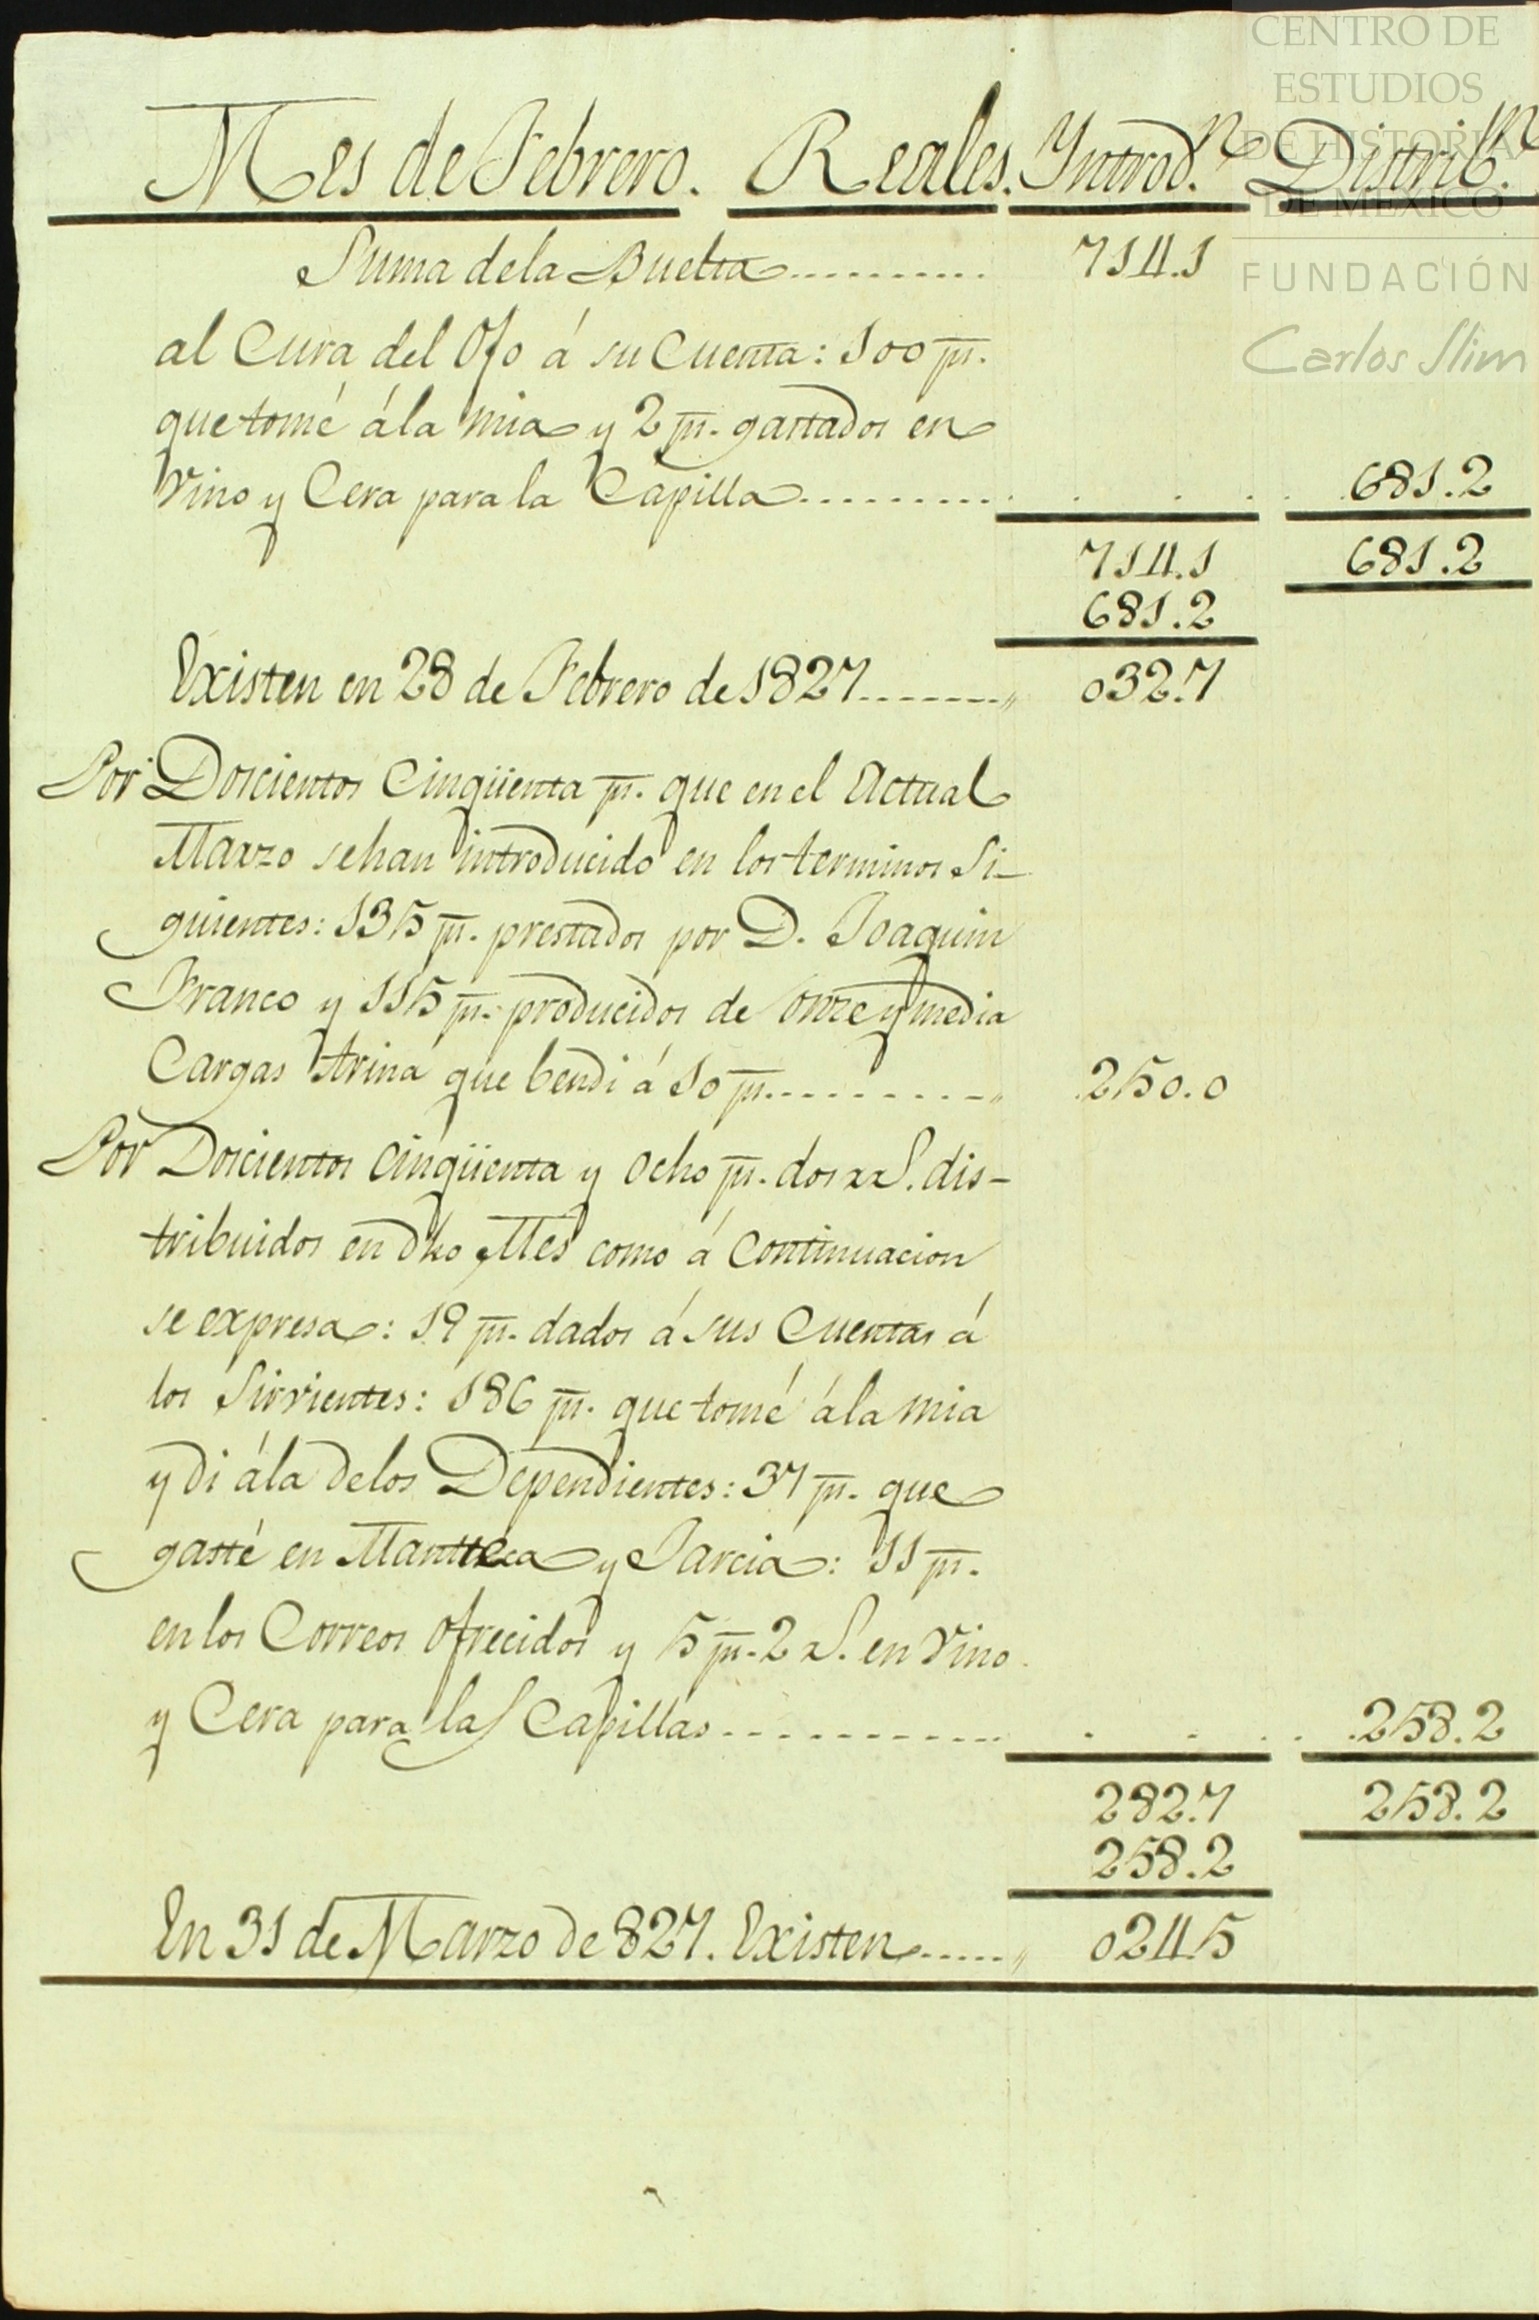 CENTRO DE
ESTUDIOS
DE HISTORIA
DE MÉXICO
FUNDACIÓN
Carlos Slim
Mes de Febrero. Reales. Yntrod.n Distrib.n
Suma dela Buelta........... 714.1
al Cura del Ojo á su Cuenta: 100 ps.
que tomé ála mia y 2 ps. gastados en
Vino y Cera para la Capilla.......... 681.2
714.1 681.2
681.2
Existen en 28 de Febrero de 1827........ 032.7
Por Doscientos Cinqüenta ps. que en el Actual
Marzo sehan introducido en los terminos Si-
guientes: 135 ps. prestados por D. Joaquin
Franco y 115 ps. producidos de onze y media
Cargas Arina que bendi á 10 ps.......... 250.0
Por Doscientos cinqüenta y ocho ps. dos rrs. dis-
tribuidos en dho Mes como á continuacion
se expresa: 19 ps. dados á sus Cuentas á
los Sirvientes: 186 ps. que tomé ála mia
y di ála delos Dependientes: 37 ps. que
gasté en Manteca y Jarcia: 11 ps.
en los Correos ofrecidos y 5 ps. 2 rs. en Vino
y Cera para las Capillas........... 258.2
282.7 258.2
258.2
En 31 de Marzo de 827. Existen...... 024.5